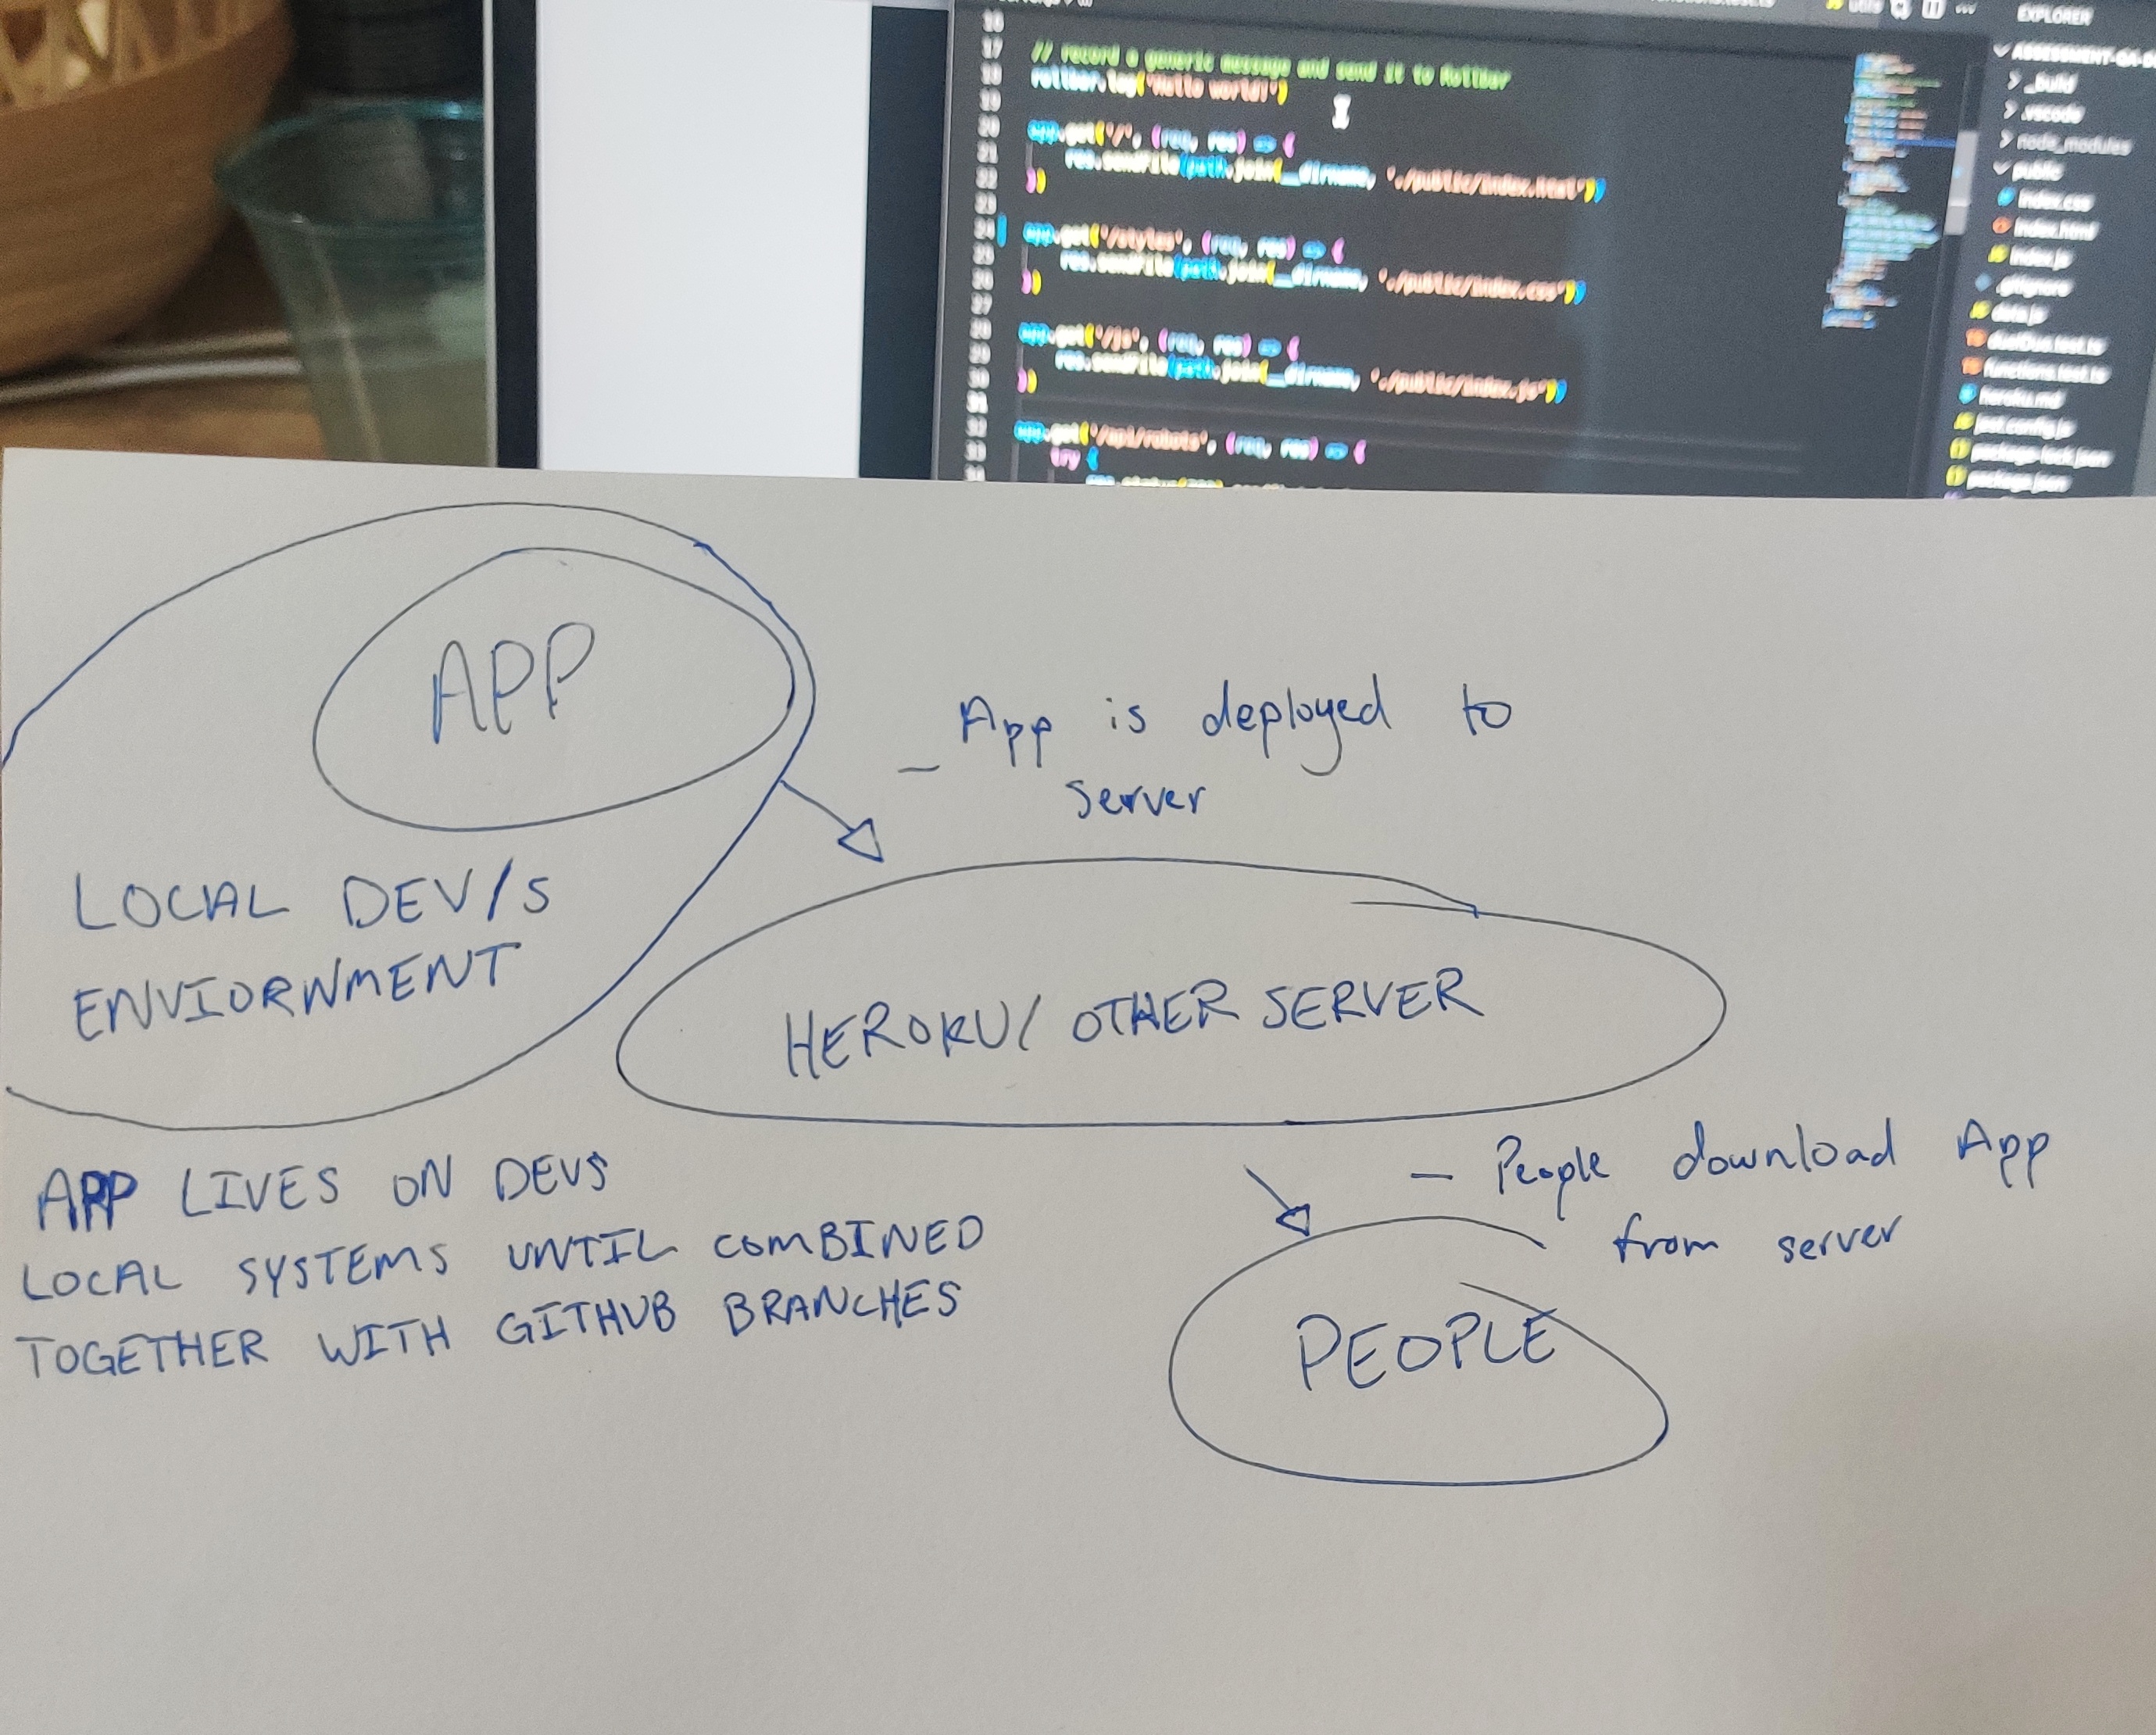 16
17
// record a generic message and send it to Rollbar
18
rollbar.log('Hello world!')
19
20
app.get('/', (req, res) => {
21
res.sendFile(path.join(__dirname, './public/index.html'))
22
})
23
24
app.get('/styles', (req, res) => {
25
res.sendFile(path.join(__dirname, './public/index.css'))
26
})
27
28
app.get('/js', (req, res) => {
29
res.sendFile(path.join(__dirname, './public/index.js'))
30
})
31
32
app.get('/api/robots', (req, res) => {
33
try {
EXPLORER
_build
.vscode
node_modules
public
index.css
index.html
index.js
.gitignore
data.js
functions.test.ts
heroku.md
jest.config.js
package-lock.json
package.json
APP
LOCAL DEV/S
ENVIORNMENT
_ App is deployed to
server
HEROKU/ OTHER SERVER
APP LIVES ON DEVS
LOCAL SYSTEMS UNTIL COMBINED
TOGETHER WITH GITHUB BRANCHES
— People download App
from server
PEOPLE